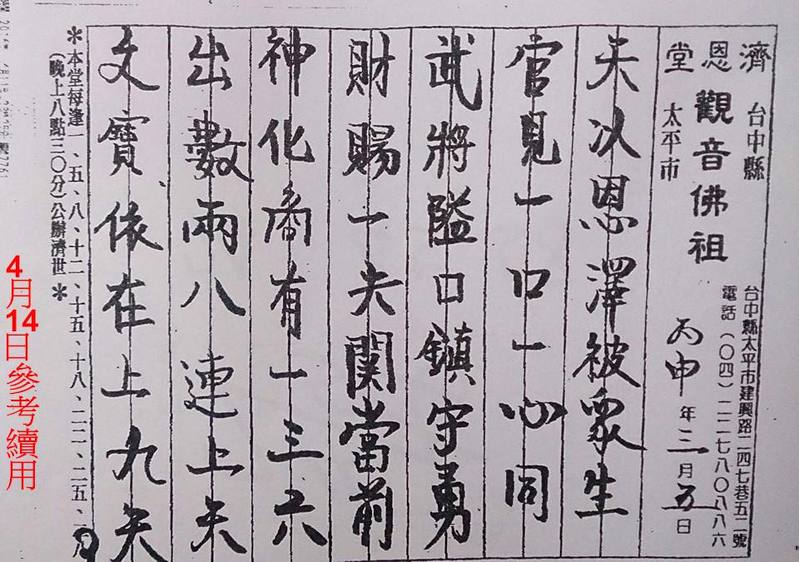 濟恩堂
台中縣
太平市
觀音佛祖
台中縣太平市建興路二四七巷五二號
電話(〇四)二二七八〇八八六
丙申年三月五日
夫以恩澤被眾生
官見一口一心同
武將隘口鎮守勇
財賜一夫関當前
神化裔有一三六
出數兩八連上天
文寶依在上九天
＊本堂每逢一、五、八、十二、十五、十八、二二、二五、二八
(晚上八點三〇分)公辦濟世＊
4月14日參考續用